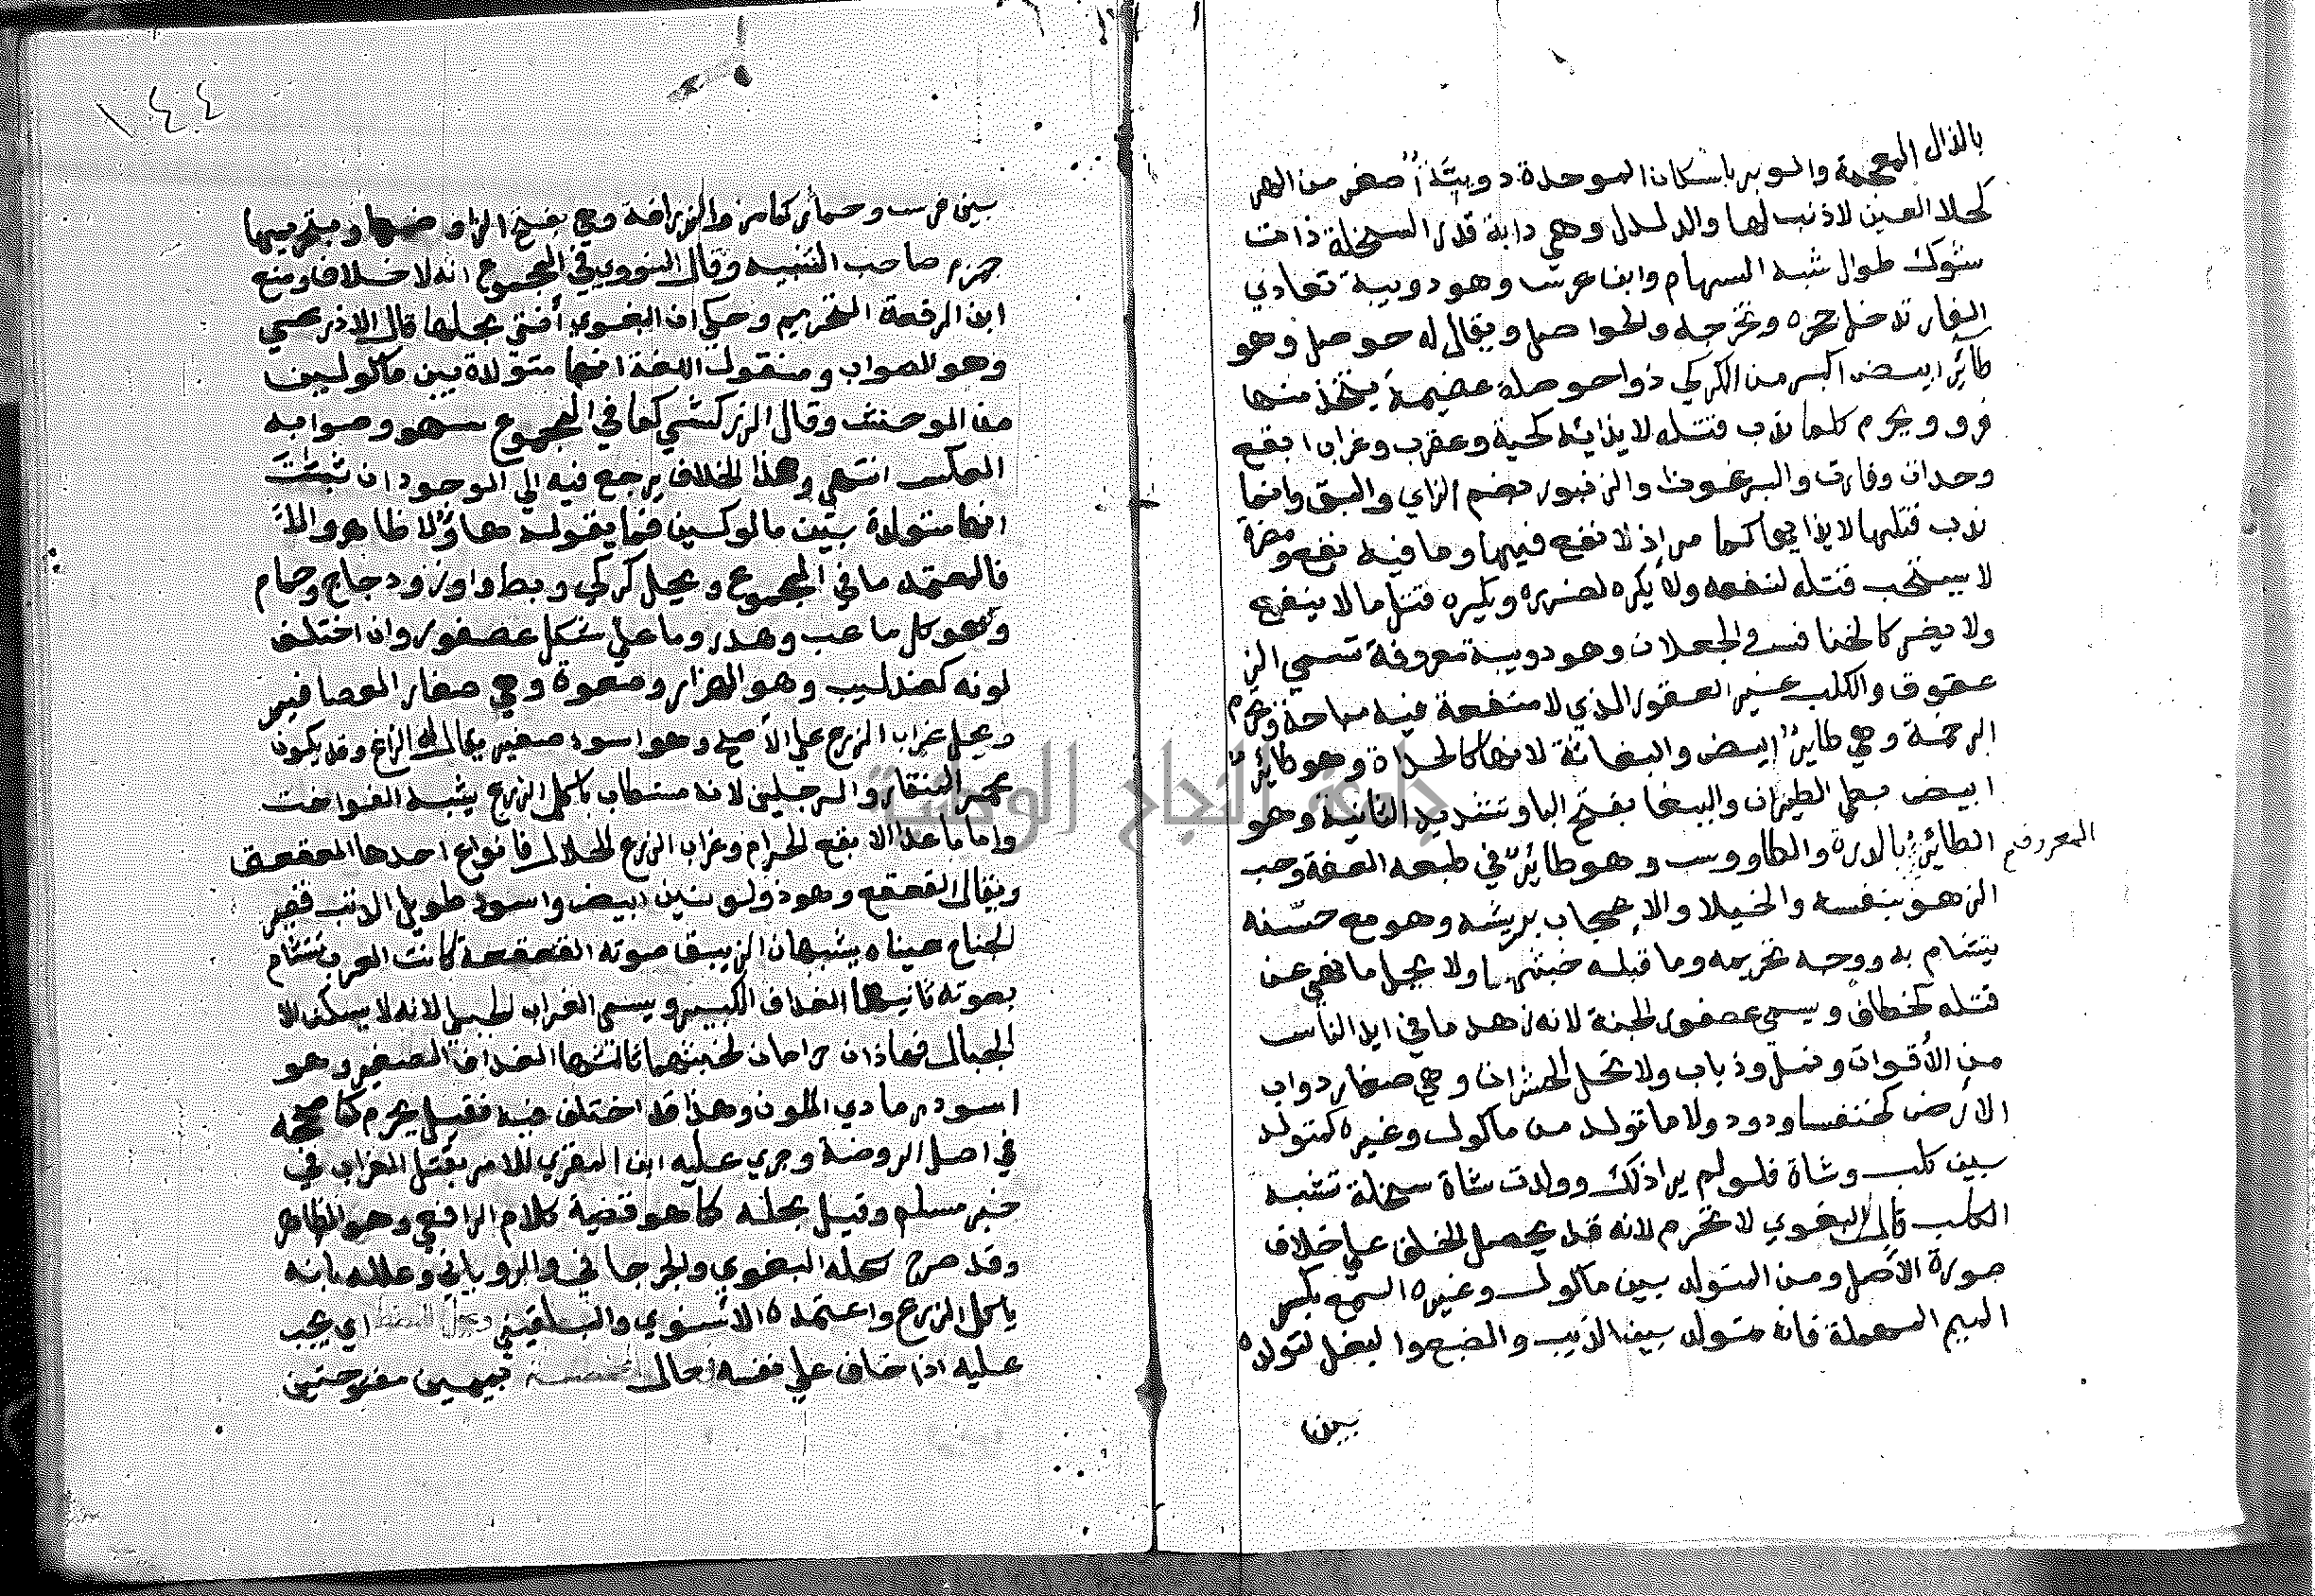 بالذال المعجمة والوبر باسكان الموحدة دويبَّة أصغر من الهر
كحلا العين لا ذنب لها والدلدل وهي دابة قدر السخلة ذات
شوك طوال شبه السهام وابن عرس وهو دويبة تعادي
الفار تدخل جحره وتخرجه والحواصل ويقال له حوصل وهو
طائر ابيض اكبر من الكركي ذوا حوصلة عضيمة يتخذ منها
فرو ويحرم كلما ندب قتله لايذائه كحية وعقرب وغراب ابقع
وحداة وفارة والبرغوث والزنبور بضم الزاي والبق وانما
ندب قتلها لايذايها كما مر اذ لا نفع فيها وما فيه نفع ومضرة
لا يستحب قتله لنفعه ولا يكره لضرره ويكره قتل ما لا ينفع
ولا يضر كالخنافس والجعلان وهو دويبة معروفة تسمي الز
عقوق والكلب غير العقور الذي لا منفعة فيه مباحة وتحرم
الرخمة وهي طاير ابيض والبغاثة لانها كالحداة وهو طائر
ابيض بطي الطيران والببغا بفتح البا وتشديد الثانية وهو
الطائر بالدرة والطاووس وهو طائر في طبعه العفة وحب
المعروف
الزهو بنفسه والخيلا والاعجاب بريشه وهو مع حسنه
يتشام به ووجه تحريمه وما قبله خبثهما ولا يحل ما نهي عن
قتله كخطاف ويسمي عصفور الجنة لانه زهد ما في ايد الناس
من الأقوات ونمل وذباب ولا تحل الحشرات وهي صغار دواب
الارض كخنفسا ودود ولا ما تولد من ماكول وغيره كمتولد
بين كلب وشاة فلو لم يرا ذلك وولدت شاة سخلة تشبه
الكلب قال البغوي لا تحرم لانه قد يحصل الخلق علي خلاف
صورة الأصل ومن المتولد بين ماكول وغيره السمع بكسر
الميم المهملة فانه متولد بين الذيب والضبع والبغل لتولده
بين
١٤٤
بين فرس وحمار كمامر والزرافة وهي بفتح الزا وضمها وبتحريمها
جزم صاحب التنبيه وقال النووي في المجموع انه لا خلاف ومنع
ابن الرفعة التحريم وحكي ان البغوي أفتي بحلها قال الاذرعي
وهو الصواب ومنقول اللغة انها متولدة بين ماكولين
من الوحش وقال الزركشي كما في المجموع سهو وصوابه
العكس انتهي وهذا الخلاف يرجع فيه الي الوجود ان ثبتت
انها متولدة بين مالوكين فما يقوله هاؤلا ظاهر والا
فالمعتمد ما في المجموع ويحل كركي وبط واوز ودجاج وحمام
وهو كل ما عب وهدر وما علي شكل عصفور وان اختلف
لونه كعندليب وهو الهزار وصعوة وهي صغار العصافير
ويحل غراب الزرع علي الأصح وهو اسود صغير يقال له الزاغ وقد يكون
محمر المنقار والرجلين لانه مستطاب ياكل الزرع يشبه الفواخت
واما ما عدا الابقع الحرام وغراب الزرع الحلال فانواع احدها العقعق
ويقال القعقع وهو ذو لونين ابيض واسود طويل الذنب قصير
الجناح عيناه يشبهان الزيبق صوته القعقعة كانت العرب تتشام
بصوته ثانيها الغداف الكبير ويسمي الغراب الجبلي لانه لا يسكن الا
الجبال فهاذان حرامان لخبثهما ثالثها الغداف الصغير وهو
اسود رمادي اللون وهذا قد اختلف فيه فقيل يحرم كما صححه
في اصل الروضة وجري عليه ابن المقري للامر بقتل الغراب في
خبر مسلم وقيل بحله كما هو قضية كلام الرافعي وهو الظاهر
وقد صرح بحله البغوي والجرجاني والروياني وعلله بانه
ياكل الزرع واعتمده الاسنوي والبلقيني وحل للمضطر اي يجب
عليه اذا خاف علي نفسه حال مخمصة بميمين مفتوحتين